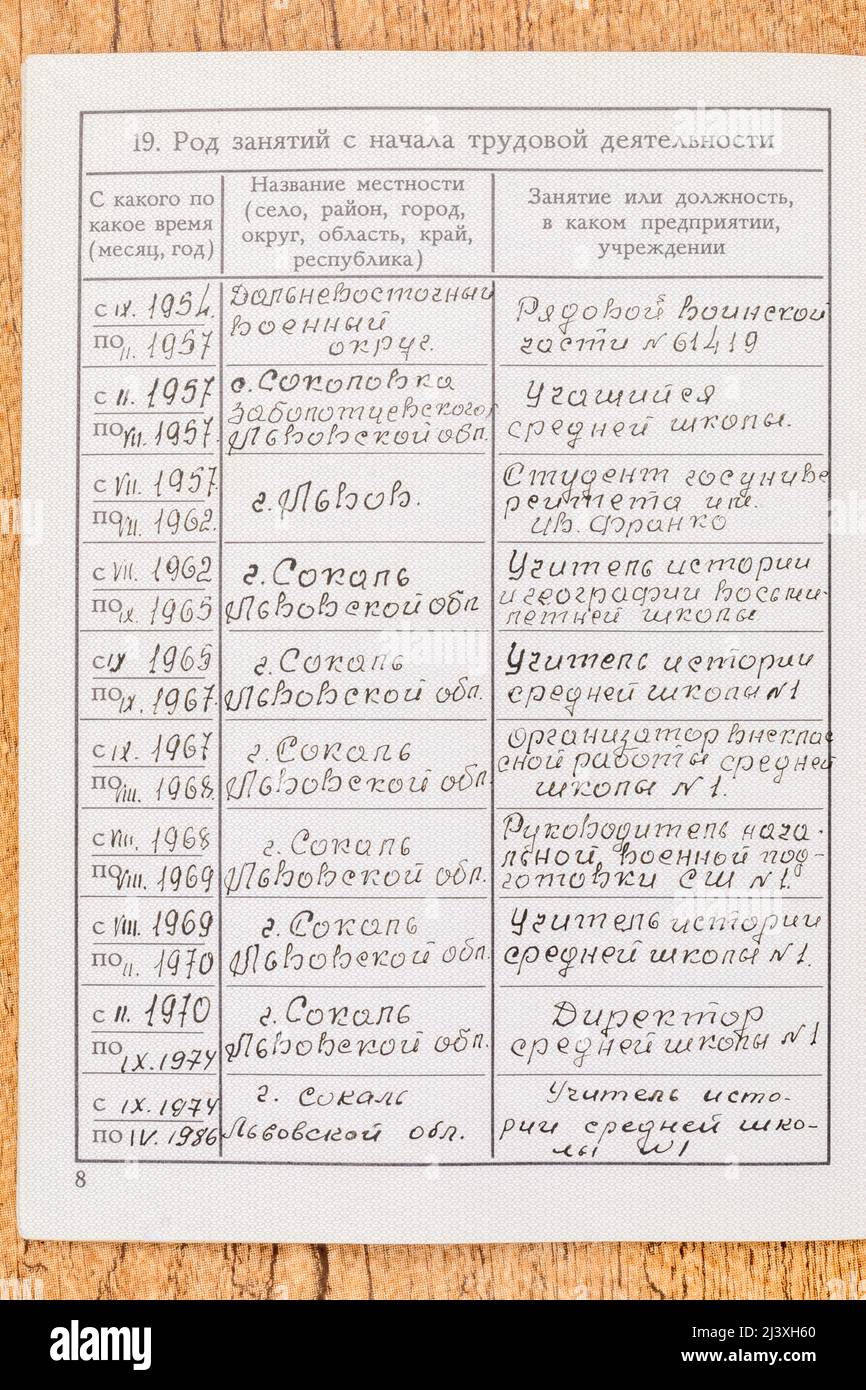 19. Род занятий с начала трудовой деятельности
С какого по
какое время
(месяц, год)
Название местности
(село, район, город,
округ, область, край,
республика)
Занятие или должность,
в каком предприятии,
учреждении
с IX. 1954.
по II. 1957
Дальневосточный
военный
округ.
Рядовой воинской
части N 61419
с II. 1957
по VII. 1957.
с. Соколовка
Заболотцевского
Львовской обл.
Учащийся
средней школы.
с VII. 1957
по VII. 1962.
г. Львов.
Студент госуниве
рситета им.
Ив. Франко
с VII. 1962
по IX. 1965
г. Сокаль
Львовской обл
Учитель истории
и географии восьми-
летней школы
с IX 1965
по IX. 1967.
г. Сокаль
Львовской обл.
Учитель истории
средней школы N1
с IX. 1967
по VIII. 1968.
г. Сокаль
Львовской обл.
Организатор внеклас
сной работы средней
школы N 1.
с VIII. 1968
по VIII. 1969
г. Сокаль
Львовской обл.
Руководитель нача-
льной военной под-
готовки СШ N1.
с VIII. 1969
по II. 1970
г. Сокаль
Львовской обл.
Учитель истории
средней школы N1.
с II. 1970
по IX. 1974
г. Сокаль
Львовской обл.
Директор
средней школы N1
с IX. 1974
по IV. 1986
г. Сокаль
Львовской обл.
Учитель исто-
рии средней шко-
лы N1
8
alamy
Image ID: 2J3XH60
www.alamy.com